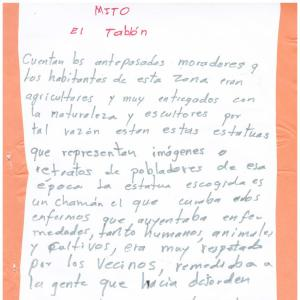 MITO
El Tablón
Cuentan los antepasados moradores q
los habitantes de esta zona eran
agricultores y muy entregados con
la naturaleza y escultores por
tal razón estan estas estatuas
que representan imágenes o
retratos de pobladores de esa
época La estatua escogida es
un chamán el que curaba a los
enfermos que auyentaba enfer
medades, tanto humanos, animales
y cultivos, era muy respetado
por los vecinos, remediaba a
la gente que hacia desorden